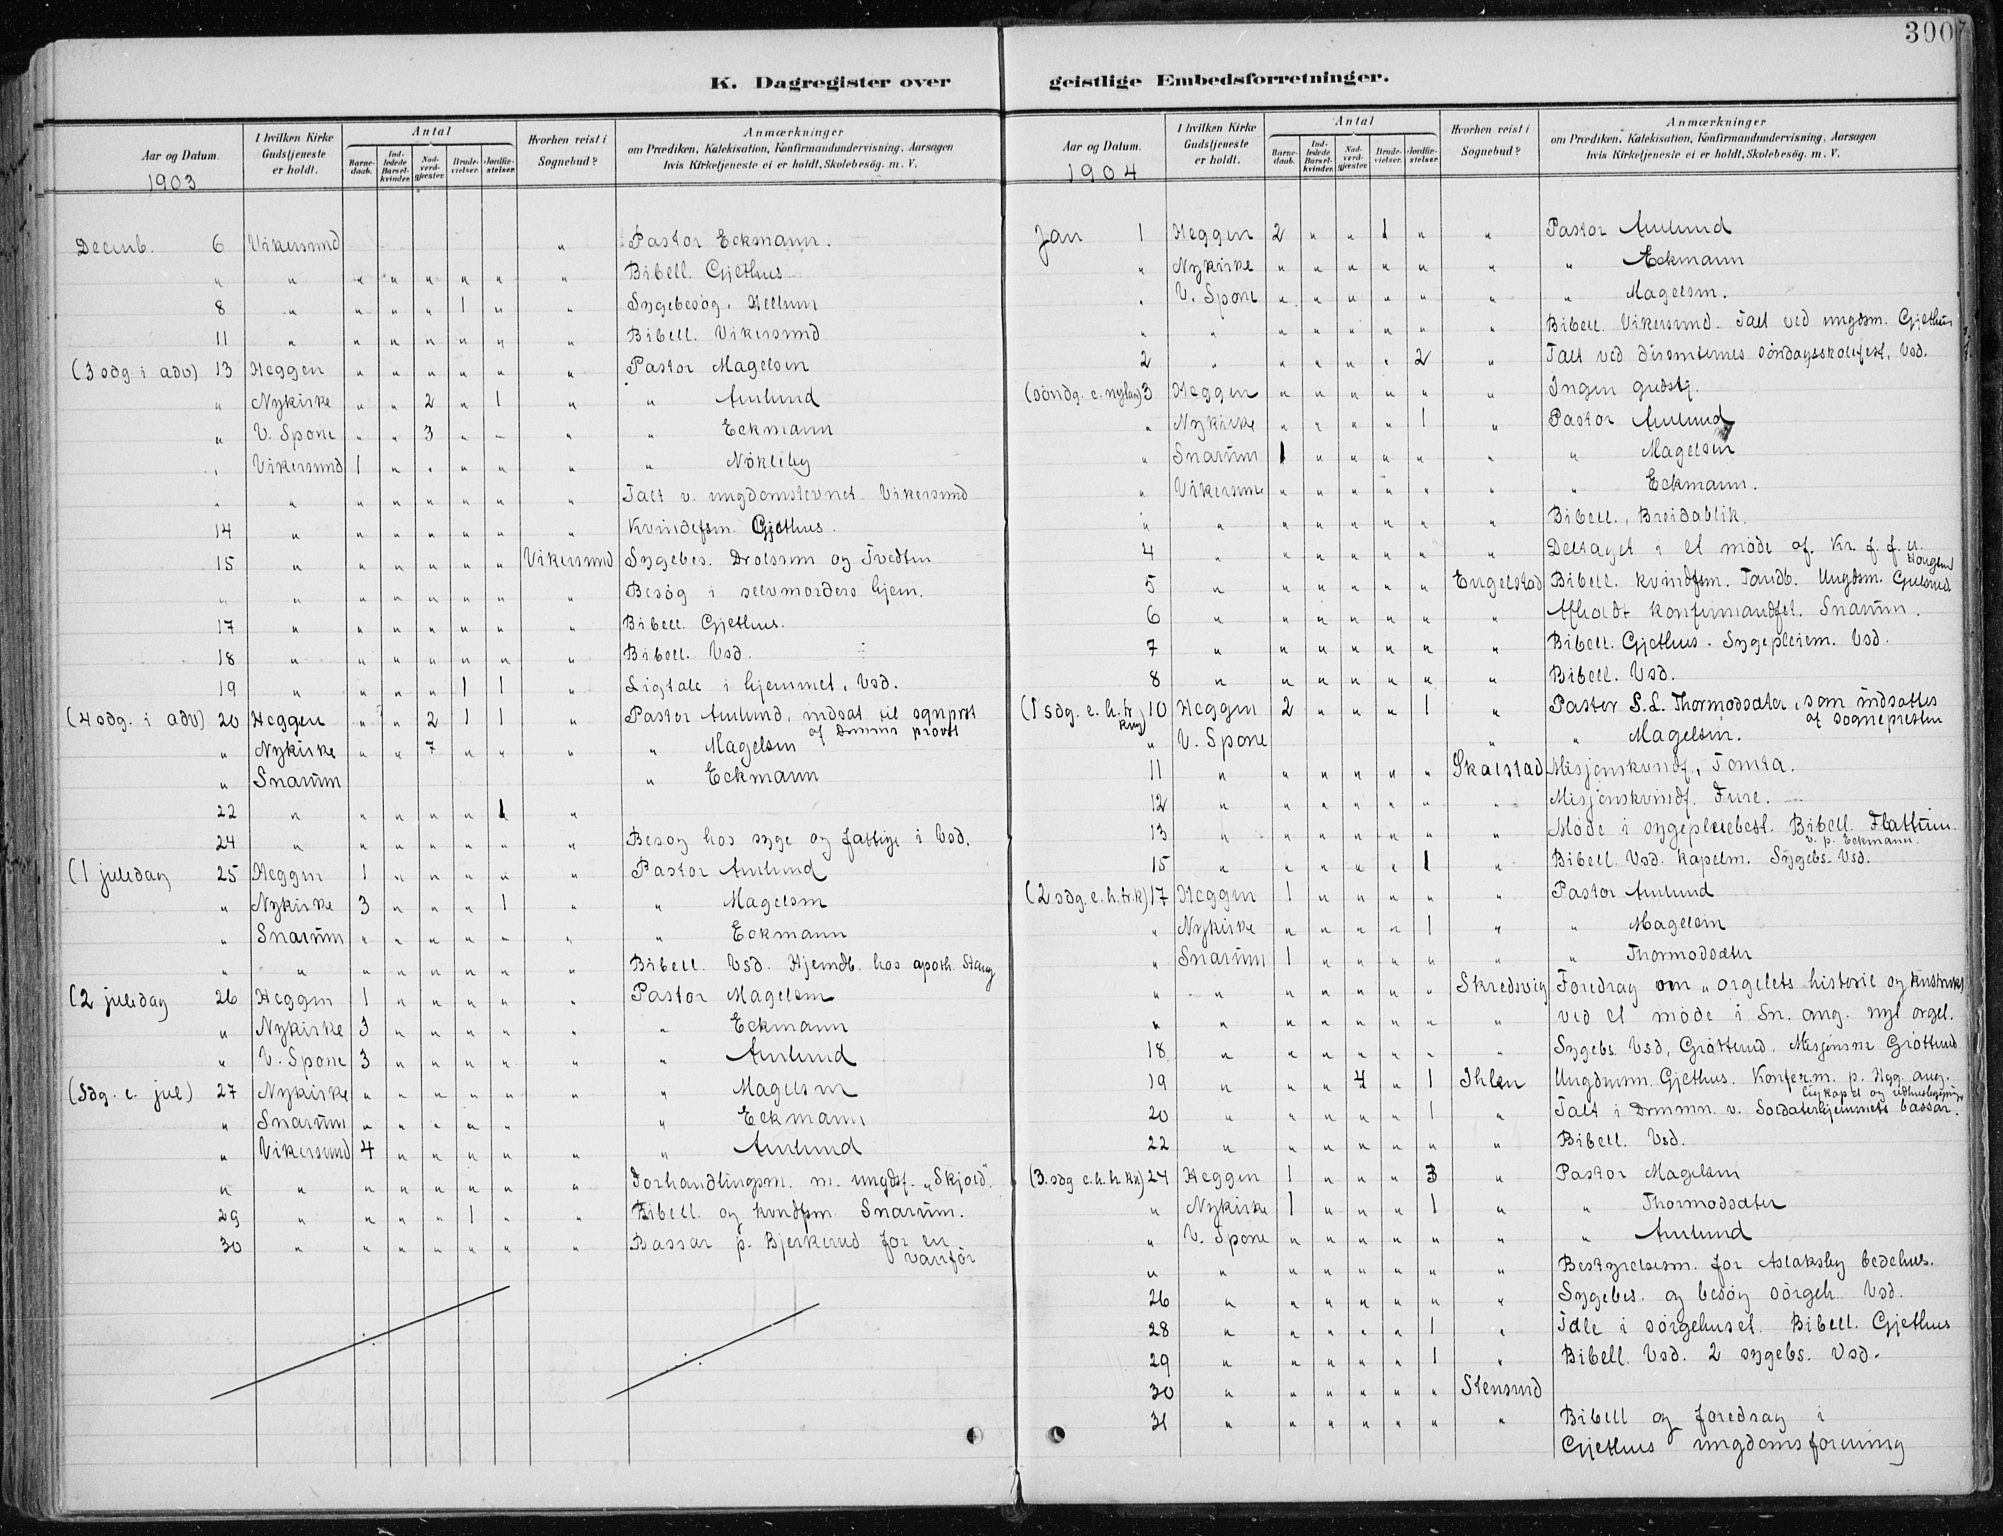 300
K. Dagregister over geistlige Embedsforretninger.
Aar og Datum.
1903
I hvilken Kirke Gudstjeneste er holdt.
Antal
Barnedaab.
Indledede Barselkvinder.
Nadverdgjester.
Brudevielser.
Jordfæstelser.
Hvorhen reist i Sognebud?
Anmærkninger
om Prædiken, Katekisation, Konfirmandundervisning, Aarsagen
hvis Kirketjeneste ei er holdt, Skolebesög. m. V.
Decmb. 6 Vikersund " Pastor Eckmann.
" " " " " " " " Bibell. Gjethus.
8 " " " " 1 " " Sygebesøg, Hellum
11 " " " " " " " Bibell. Vikersund
(3 sdg i adv) 13 Heggen " " " " " " Pastor Magelsen
" Nykirke " " 2 " 1 " " Amlund
" V. Spone " " 3 " " " " Eckmann
" Vikersund 1 " " " " " " Nökleby
" " " " " " " " Talt v. ungdomstevnet Vikersund
14 " " " " " " " Kvindefsm. Gjethus.
15 " " " " " " Vikersund Sygebes. Drolsum og Tvedten
" " " " " " " " Besøg i selvmorders hjem.
17 " " " " " " " Bibell. Gjethus.
18 " " " " " " " Bibell. Vsd.
19 " " " " 1 1 " Ligtale i hjemmet, Vsd.
(4 sdg. i adv) 20 Heggen " " 2 1 1 " Pastor Amlund, indsat til sgnprst
af Drmns provst
" Nykirke " " 7 " " " " Magelsen
" Snarum " Eckmann
22 " " " " " 1 "
24 " " " " " " " Besøg hos syge og fattige i Vsd.
(1 juledag 25 Heggen 1 " " " " " Pastor Amlund
" Nykirke 3 " " " 1 " " Magelsen
" Snarum " " " " " " " Eckmann
" " " " " " " " Bibell. Vsd. Hjemdb. hos apoth. Stang
(2 juledag 26 Heggen 1 " " " " " Pastor Magelsen
" Nykirke 3 " " " " " " Eckmann
" V. Spone 3 " " " " " " Amlund
(Sdg. e. jul) 27 Nykirke " " " " " " " Magelsen
" Snarum " " " " " " " Eckmann
" Vikersund 4 " " " " " " Amlund
" " " " " " " " Forhandlingsm. m. ungdsf. „Skjold."
29 " " " " 1 " " Bibell og kvndfsm. Snarum.
30 " " " " " " " Bassar p. Bjerkerud for en
vanför
Aar og Datum.
1904
I hvilken Kirke Gudstjeneste er holdt.
Antal
Barnedaab.
Indledede Barselkvinder.
Nadverdgjester.
Brudevielser.
Jordfæstelser.
Hvorhen reist i Sognebud?
Anmærkninger
om Prædiken, Katekisation, Konfirmandundervisning, Aarsagen
hvis Kirketjeneste ei er holdt, Skolebesög. m. V.
Jan 1 Heggen 2 " " 1 " " Pastor Amlund
" Nykirke " " " " " " " Eckmann
" V. Spone " " " " " " " Magelsen.
" " " " " " " " Bibell. Vikersund. Talt ved ungdsm. Gjethus
2 " " " " " 2 " Talt ved dissenternes söndagsskolefest, Vsd.
(söndg. e. nytaar) 3 Heggen " " " " " " Ingen gudstj.
" Nykirke " " " " 1 " Pastor Amlund
" Snarum 1 " " " " " " Magelsen
" Vikersund " " " " " " " Eckmann.
" " " " " " " " Bibell., Breidablik.
4 " " " " " " " Deltaget i et möde af. Kr. f. f. u.
Haugsund
5 " " " " " " Engelstad Bibell. kvindfsm. Tandb. Ungdsm. Gulsrud
6 " " " " " " " Afholdt konfirmandfst. Snarum.
7 " " " " " " " Bibell. Gjethus. Sygepleiem. Vsd.
8 " " " " " " " Bibell. Vsd.
(1 sdg. e. h. tr. kng) 10 Heggen 2 " " " 1 " Pastor S.L. Thormodsæter, som indsattes
af sognepresten
" V. Spone " " Magelsen.
11 " " " " " " Skalstad Misjonskvindf., Tomta.
12 " " " " " " " Misjonskvindf. Fure.
13 " " " " " " " Möde i sygepleiebest. Bibell. Flattum.
v. p. Eckmann.
15 " " " " " 1 " Bibell. Vsd. kapelm. Sygebs. Vsd.
(2 sdg. e. h. tr.k) 17 Heggen 1 " " " " " Pastor Amlund
" Nykirke " " " " 1 " " Magelsen
" Snarum 1 " " " " " " Thormodsæter
" " " " " " " Skredsvig Foredrag om „orgelets historie og knstruks"
" " " " " " " " ved et möde i Sn. ang. nyt orgel.
18 " " " " " " " Sygebs. Vsd, Gröttrud. Misjonsm Gröttrud
19 " " " 4 " 1 Ihlen Ungdmsm. Gjethus. Konfer.m. p. Hgg. ang.
ligkapel og
20 " " " " " 1 " Talt i Drmmn. v. Soldaterhjemmets bassar.
22 " " " " " " " Bibell. Vsd.
(3. sdg e. h. tr. kn) 24 Heggen 1 " " " 3 " Pastor Magelsen
" Nykirke 1 " " " 1 " " Thormodsæter
" V. Spone " " " " " " " Amlund
" " " " " " " " Bestyrelsesm. for Aslaksby bedehus.
26 " " " " " " " Sygebes. og besøg sörgeh. Vsd.
28 " " " " " 1 " Tale i sörgehuset. Bibell. Gjethus
29 " " " " " 1 " Bibell. Vsd. 2 sygebs. Vsd.
30 " " " " " " Stensrud
31 " " " " " " " Bibell og foredrag i
Gjethus ungdomsforening